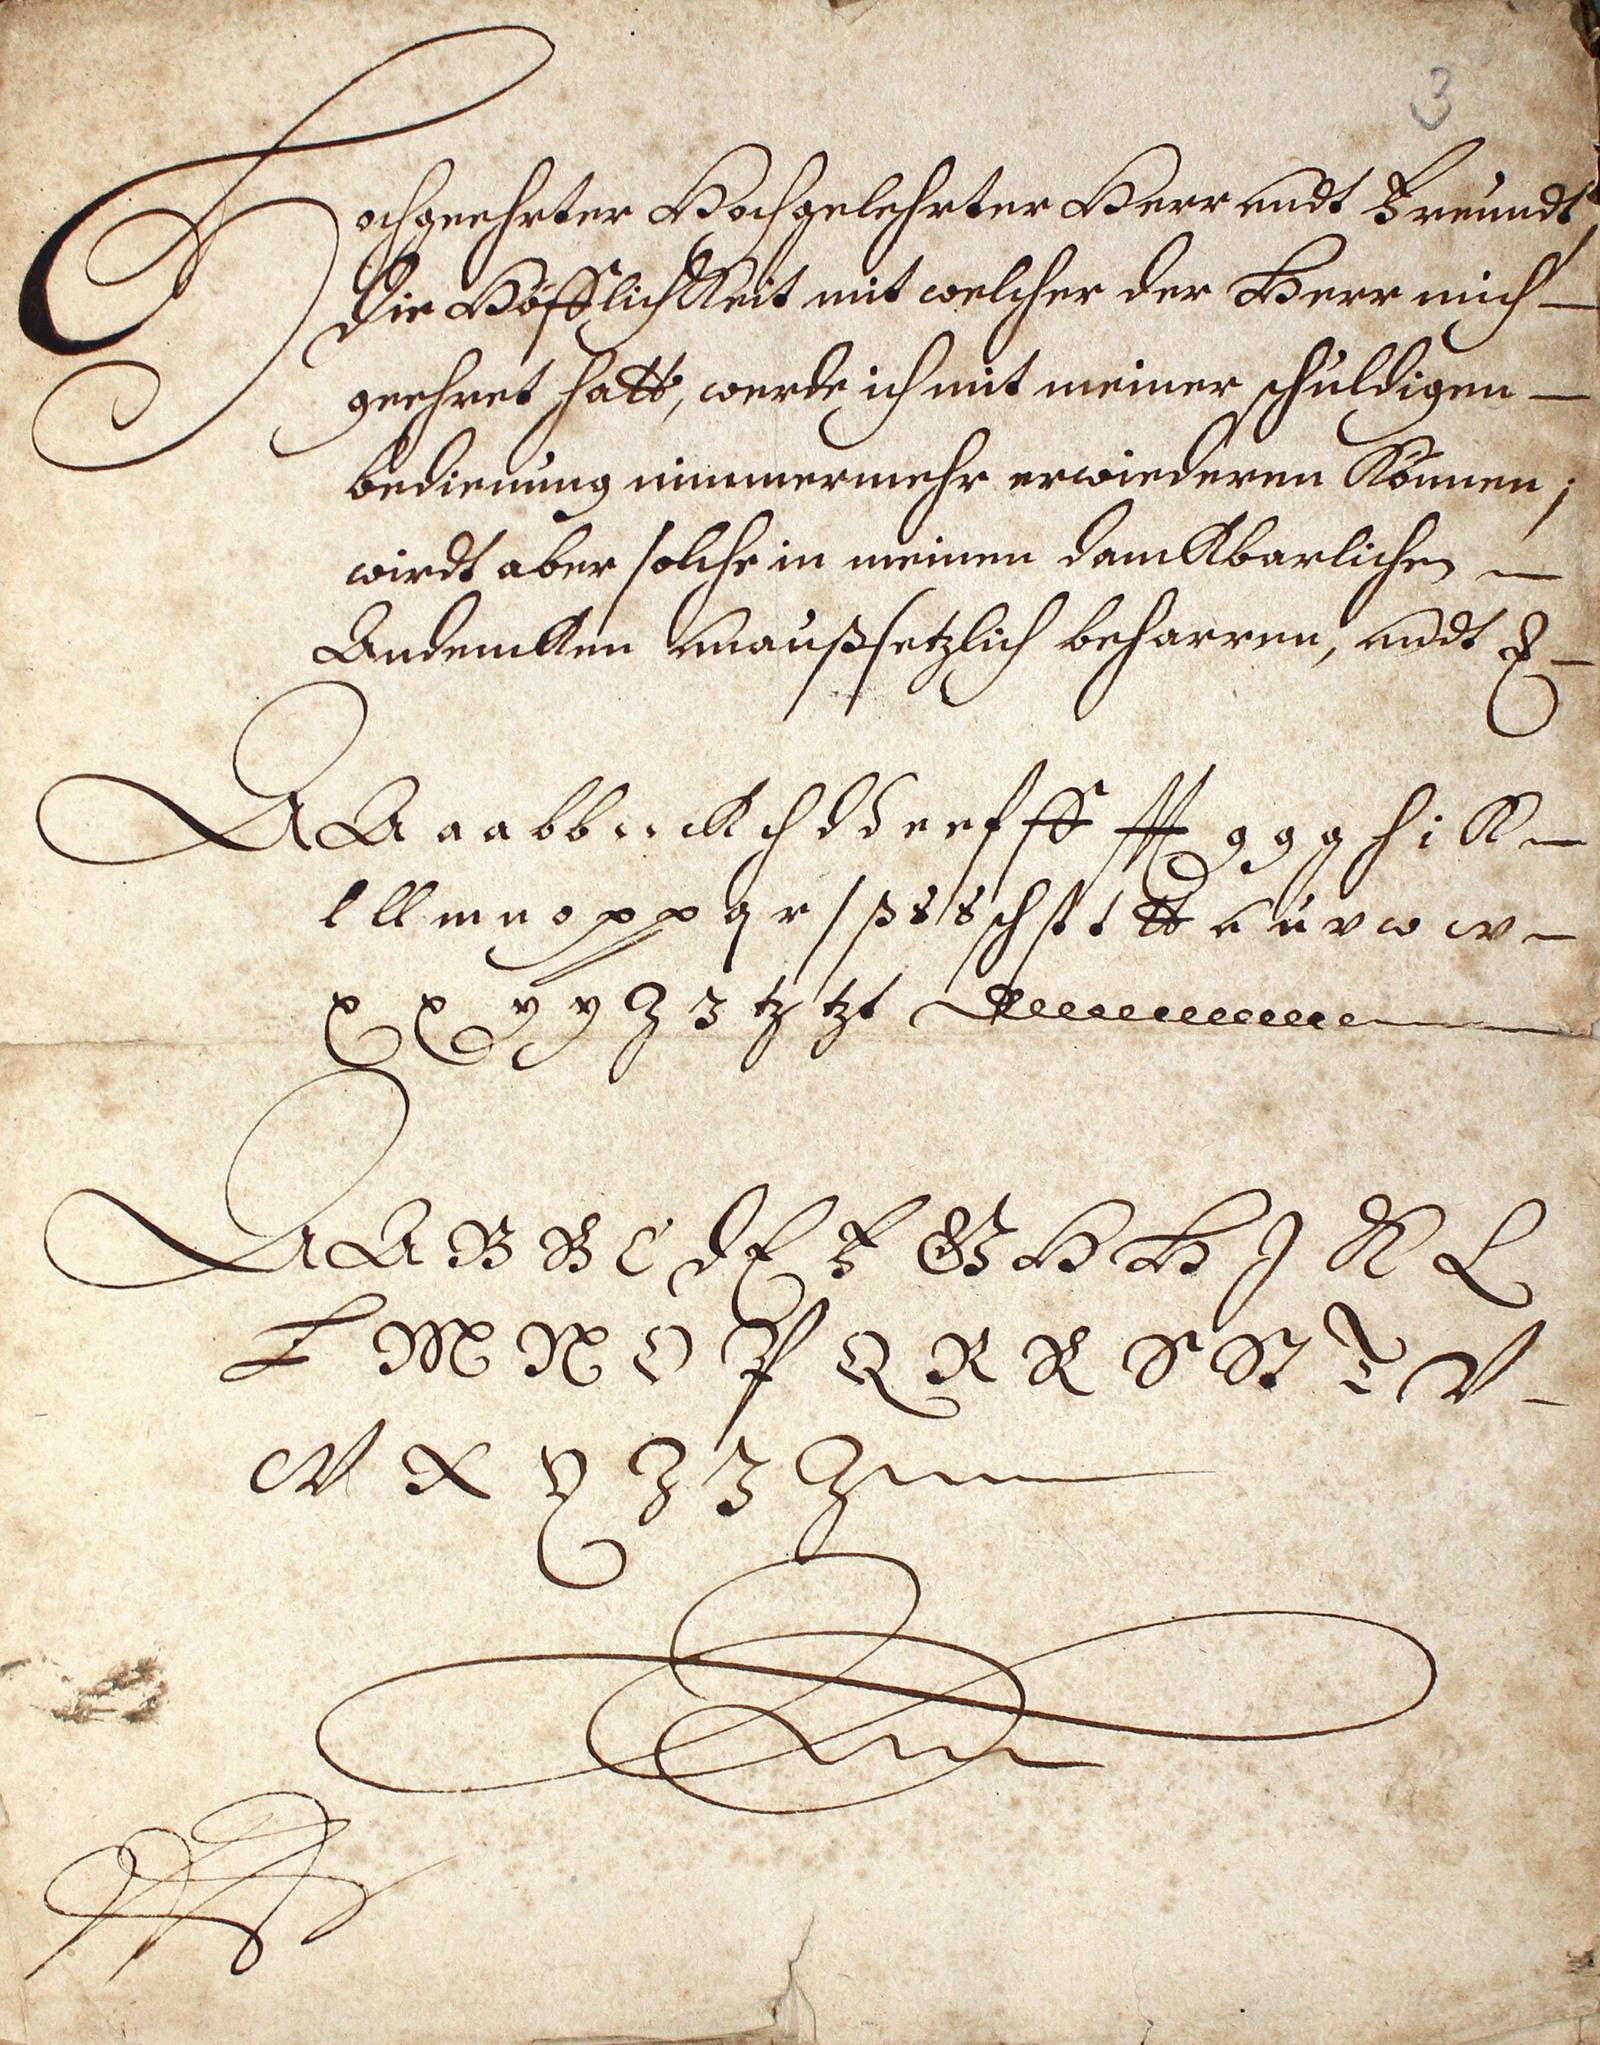 3
Hochgeehrter Hochgelehrter Herr undt Freündt,
die Höfflichkeit mit welcher der Herr mich –
geehret hatt, werde ich mit meiner schüldigen –
bedienüng nimmermehr erwiederen können;
wirdt aber solche in meinen danckbarlichen –
Andencken unaußsetzlich beharren, undt
A A a a b b c c ck ch d d d e e f ff fff g g g h i k –
l ll m n o p p q r s ß s s sch st t tt u ü v w w –
x x y y z z tz tzt
A A B B C D E F G H H J K L
L M N O P Q R R S St T V –
W X Y Z Z Z